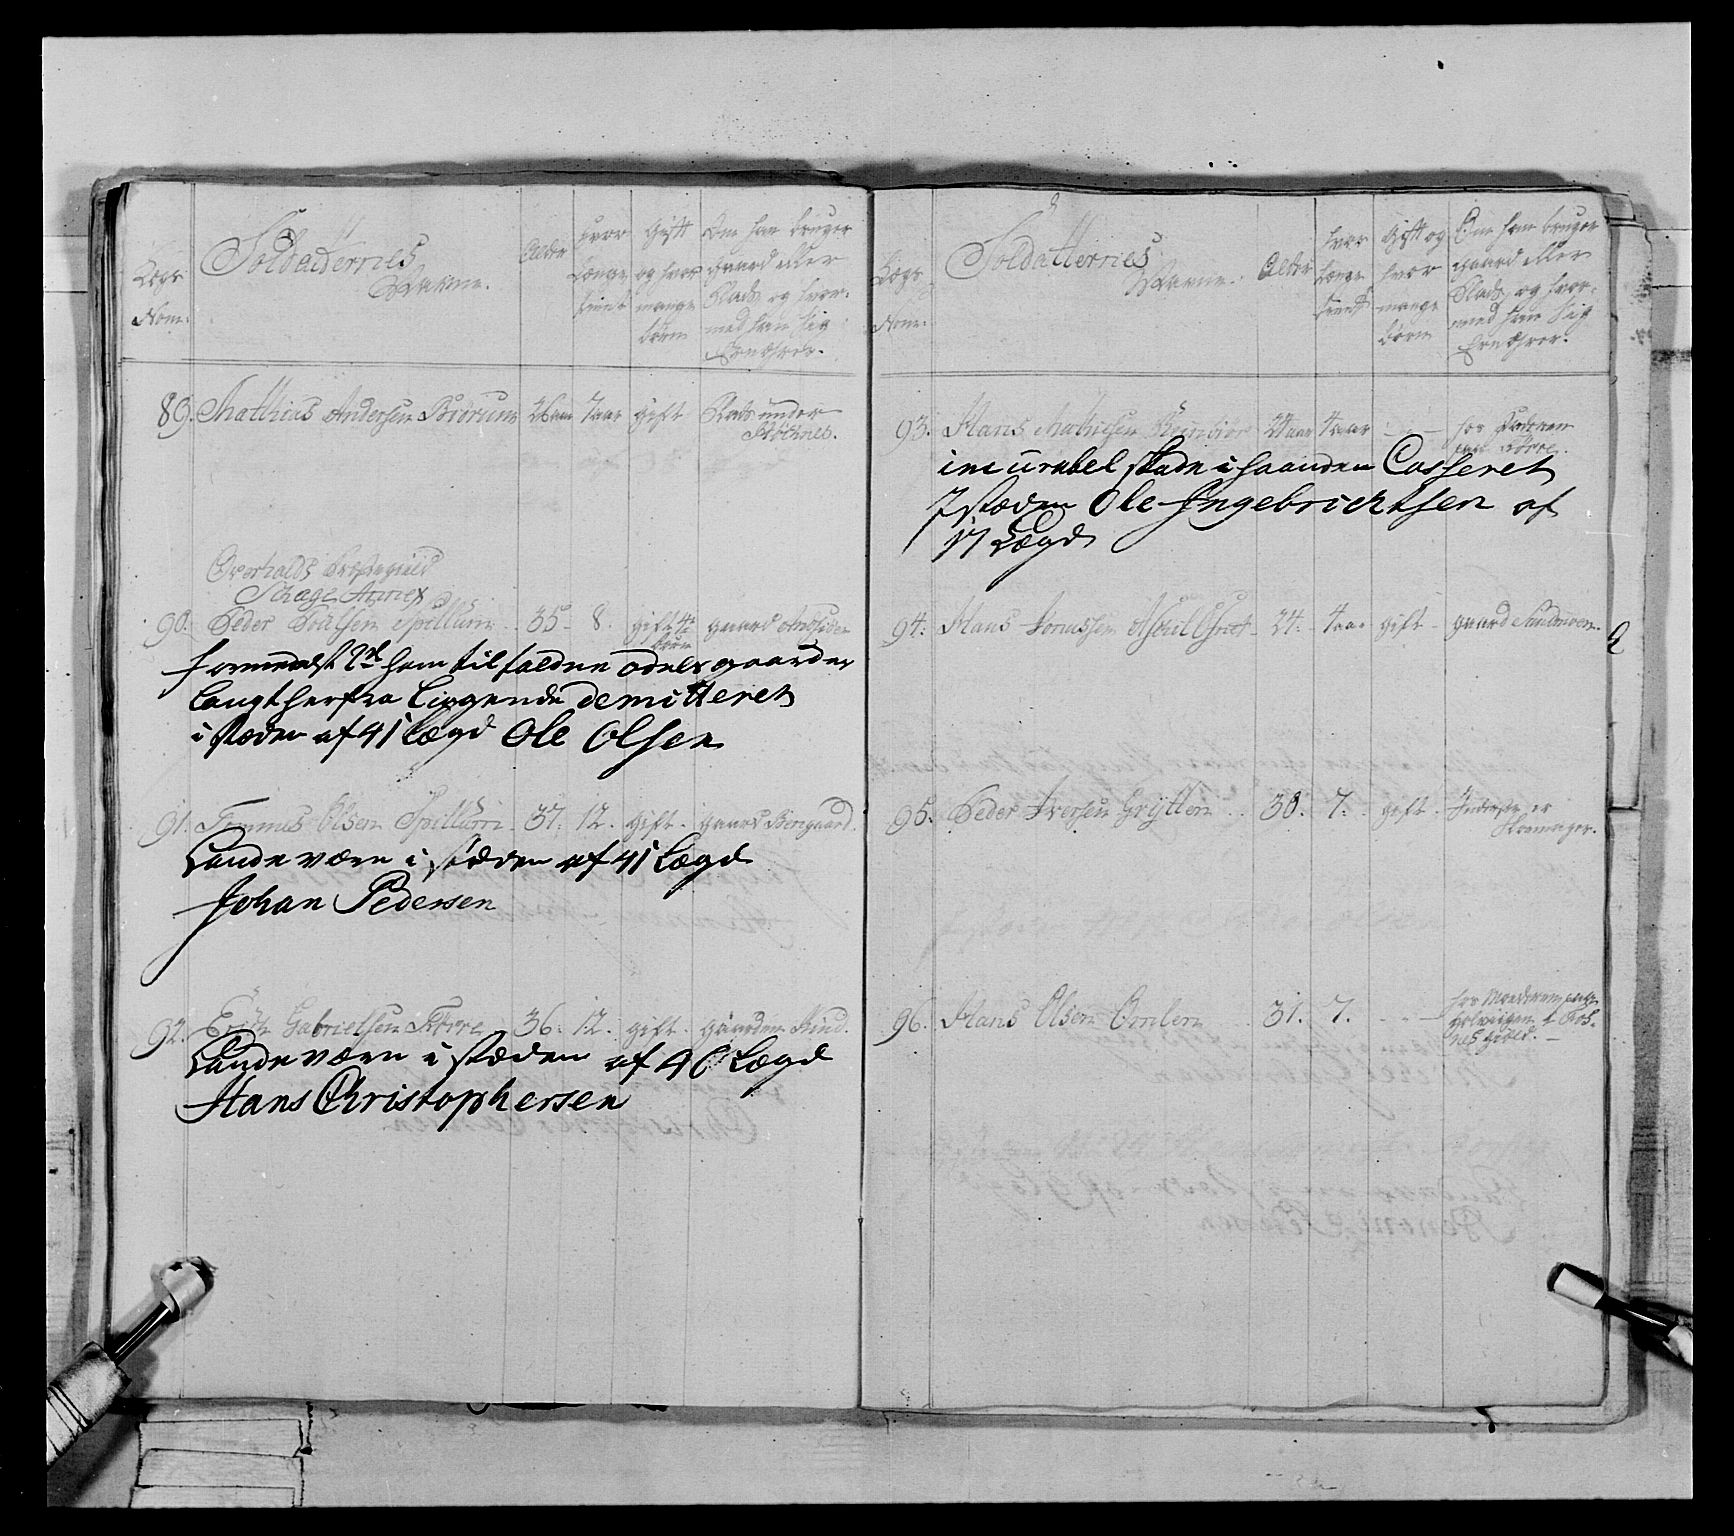 Lægs
Nom:
Soldatternes
Navne.
Alder
hvor
længe
tient
Gift
og hvor
mange
børn
Om han bruger
gaard eller
Plads, og hvor-
med han sig
Ernæhrer.
89. Matthias Andersen Biörum 26 aar 7 aar gift Plads under
Overhalds Præstegield
Schage Annex
90. Peder Poulsen Spillum 35 8. gift 4re
børn gaard
formedelst 2de ham tilfaldne odels gaarder
langt herfra liggende demitteret
i stæden af 41 Lægd Ole Olsen
91. Olsen Spillum 37. 12. gift. gaard
Landeværn i stæden af 41 Lægd
Johan Pedersen
92. Erich Gabrielsen 36. 12. gift. gaarden
Landeværn i stæden af 40 Lægd
Hans Christophersen
Lægs
Nom:
Soldatternes
Navne.
Alder
hvor
længe
tient
Gift og
hvor
mange
børn
Om han bruger
gaard eller
Plads, og hvor-
med han sig
Ernæhrer.
93. Hans Mathiesen 4 aar for Faderen
incurabel skade i haanden Casseret
I stæden Ole Ingebrichtsen af
17 Lægd
94. Hans 24. 4 aar gift gaard
95. Peder Iversen Grÿtten 30. 7. gift. Inderste er
Skomager.
96. Hans Olsen 31. 7. for Moderen